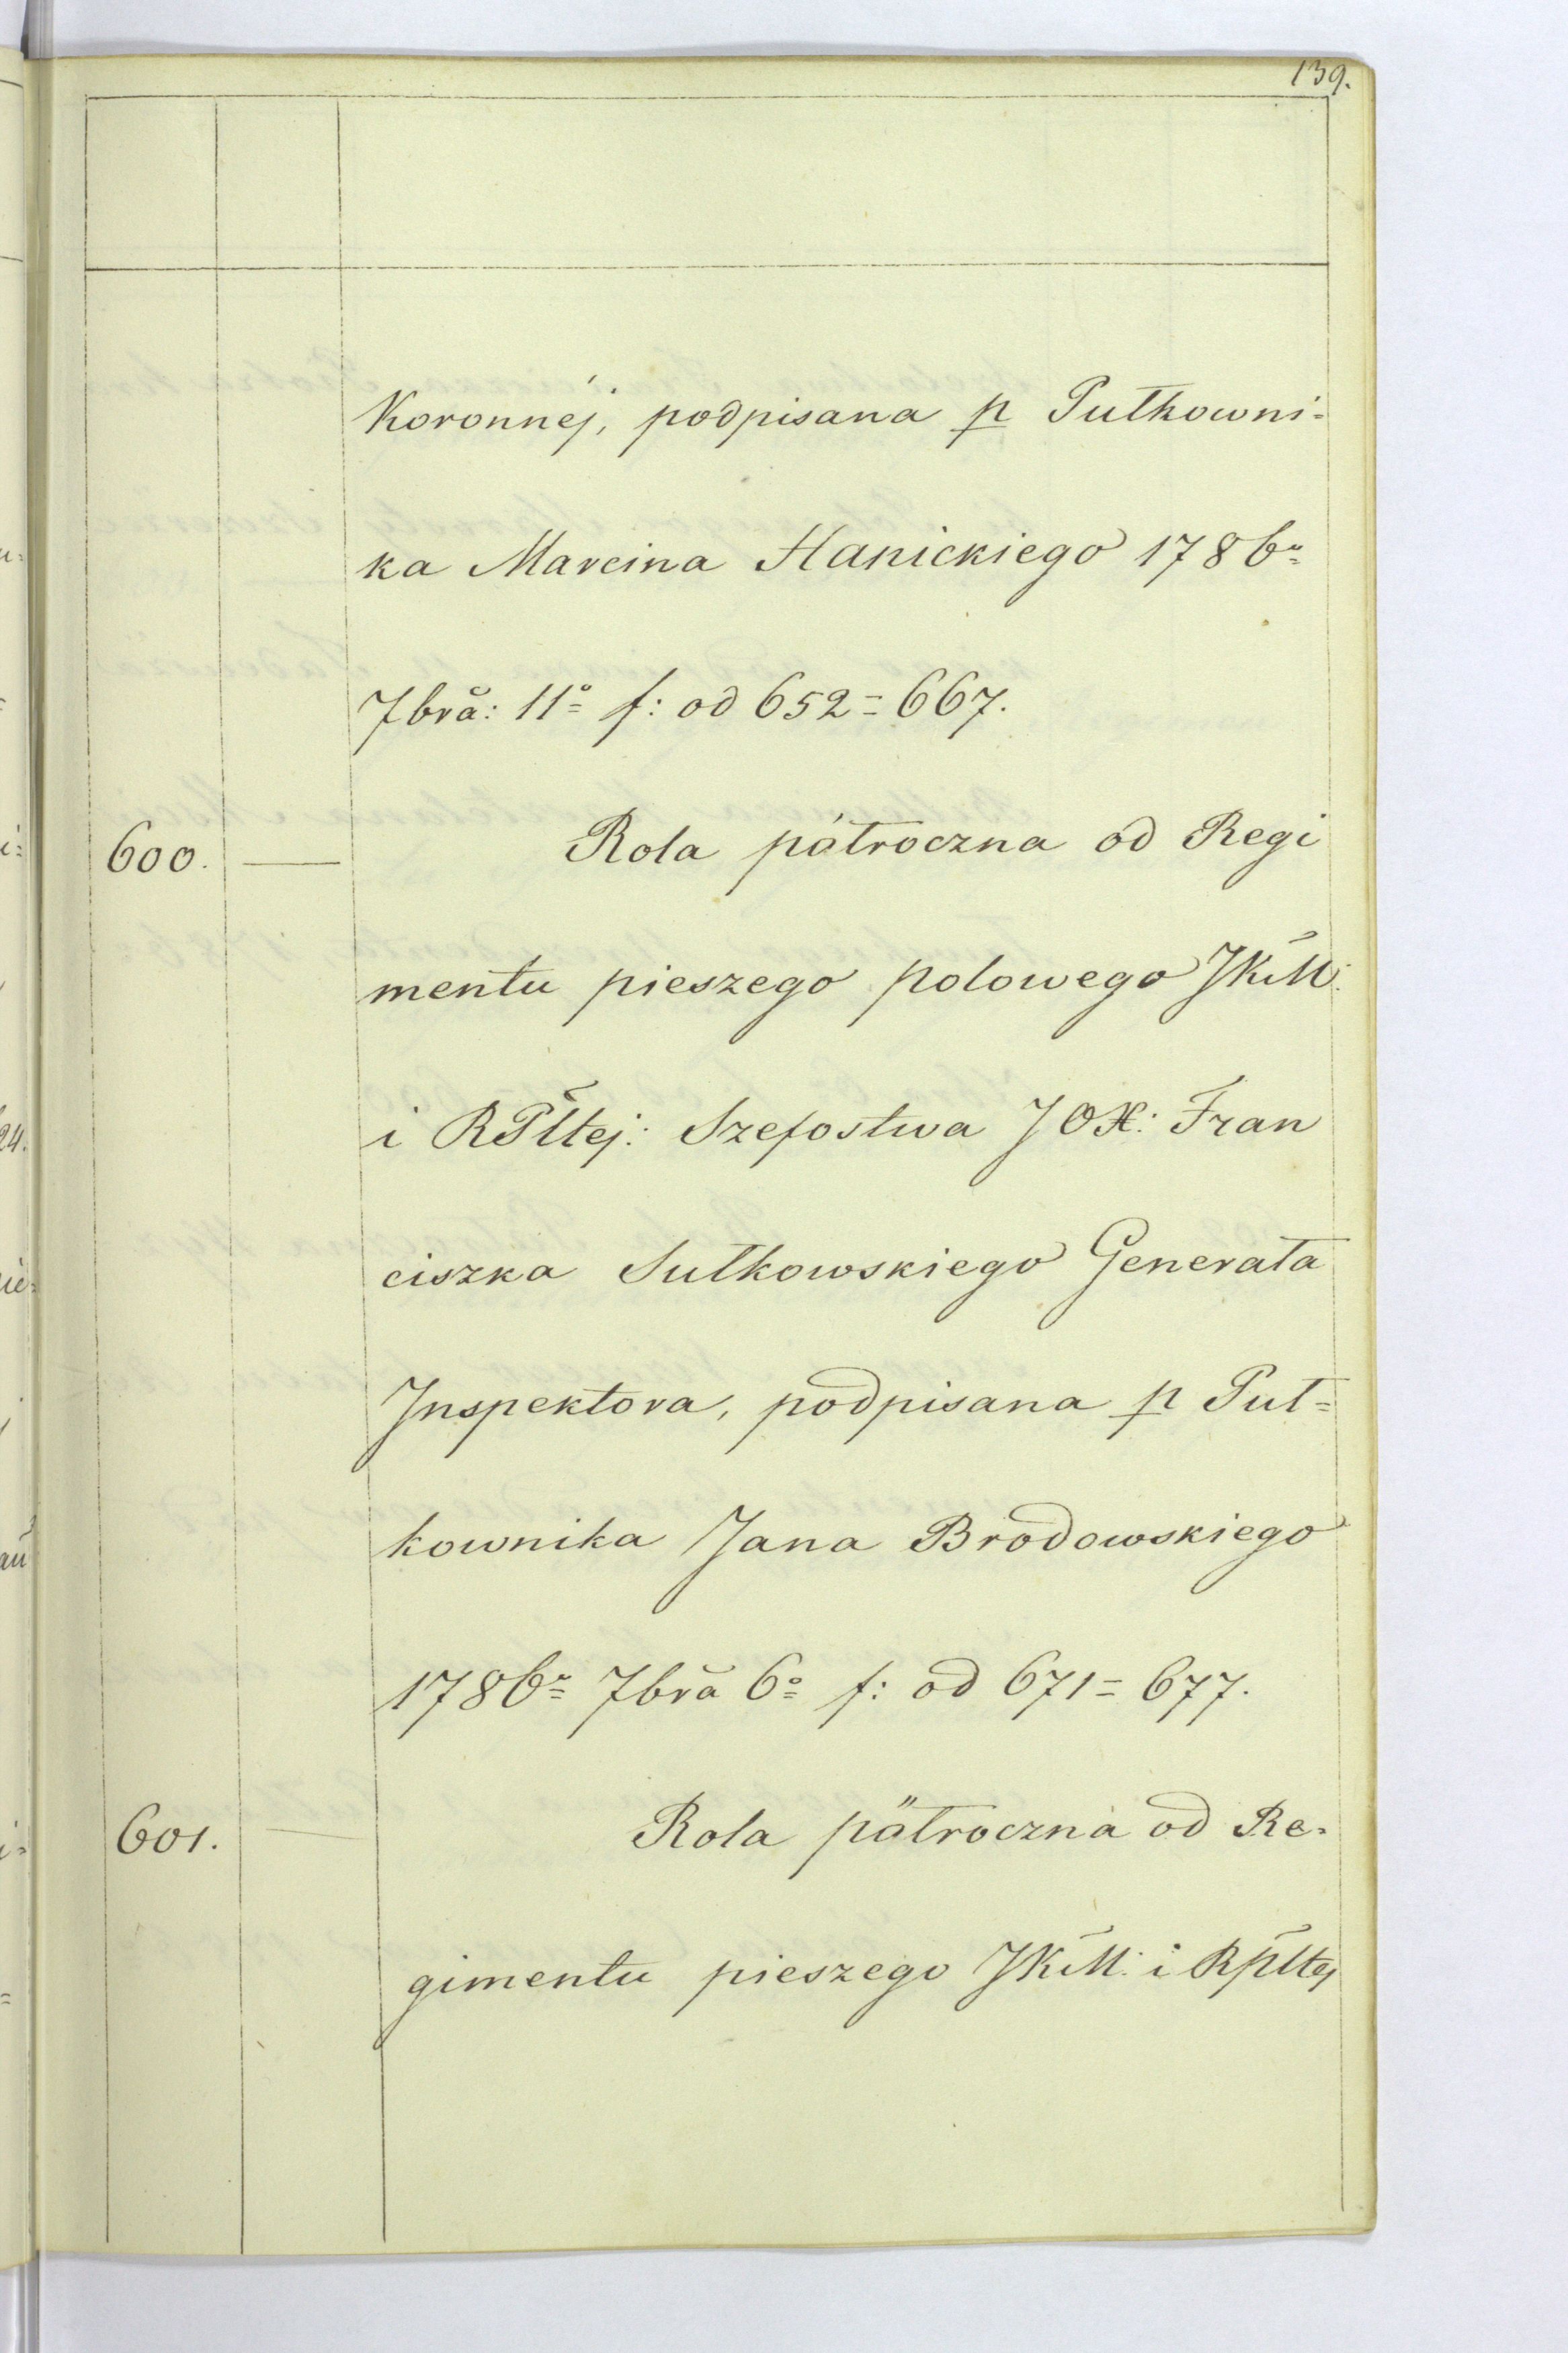 139.
Koronnéj, podpisana p Pułkowni=
ka Marcina Hanickiego 1786.
7brã: 11º f: od 652=667.
600. — Rola pátroczna od Regi
mentu pieszego polowego JKM:
i RPltej: Szefostwa JOX: Fran
ciszka Sułkowskiego Generała
Inspektora, podpisana p Puł=
kownika Jana Brodowskiego
1786. 7brã 6º f: od 671=677.
601. — Rola pátroczna od Re=
gimentu pieszego JKM: i Rpltej